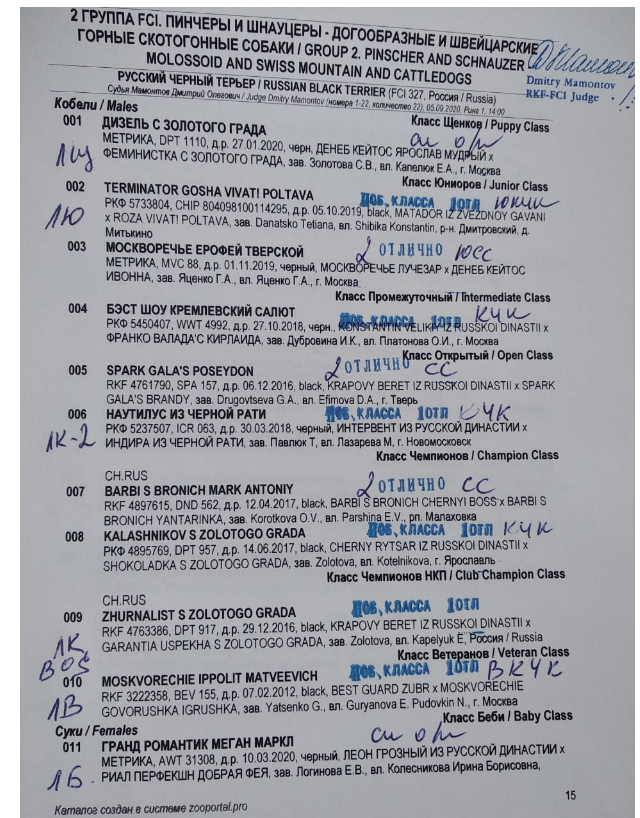 2 ГРУППА FCI. ПИНЧЕРЫ И ШНАУЦЕРЫ - ДОГООБРАЗНЫЕ И ШВЕЙЦАРСКИЕ
ГОРНЫЕ СКОТОГОННЫЕ СОБАКИ / GROUP 2. PINSCHER AND SCHNAUZER
MOLOSSOID AND SWISS MOUNTAIN AND CATTLEDOGS
Dmitry Mamontov
RKF-FCI Judge
РУССКИЙ ЧЕРНЫЙ ТЕРЬЕР / RUSSIAN BLACK TERRIER (FCI 327, Россия / Russia)
Судья Мамонтов Дмитрий Олегович / Judge Dmitry Mamontov (номера 1-22, количество 22), 05.09.2020, Ринг 1, 14:00
Кобели / Males
Класс Щенков / Puppy Class
001 ДИЗЕЛЬ С ЗОЛОТОГО ГРАДА оч пер
МЕТРИКА, DPT 1110, д.р. 27.01.2020, черн, ДЕНЕБ КЕЙТОС ЯРОСЛАВ МУДРЫЙ x
ФЕМИНИСТКА С ЗОЛОТОГО ГРАДА, зав. Золотова С.В., вл. Капелюк Е.А., г. Москва
ЛЩ
Класс Юниоров / Junior Class
002 TERMINATOR GOSHA VIVAT! POLTAVA ПОБ. КЛАССА 1 ОТЛ ЮКЧК
РКФ 5733804, CHIP 804098100114295, д.р. 05.10.2019, black, MATADOR IZ ZVEZDNOY GAVANI
x ROZA VIVAT! POLTAVA, зав. Danatsko Tetiana, вл. Shibika Konstantin, р-н. Дмитровский, д.
Митькино
ЛЮ
003 МОСКВОРЕЧЬЕ ЕРОФЕЙ ТВЕРСКОЙ 2 ОТЛИЧНО ЮСС
МЕТРИКА, MVC 88, д.р. 01.11.2019, черный, МОСКВОРЕЧЬЕ ЛУЧЕЗАР x ДЕНЕБ КЕЙТОС
ИВОННА, зав. Яценко Г.А., вл. Яценко Г.А., г. Москва
Класс Промежуточный / Intermediate Class
004 БЭСТ ШОУ КРЕМЛЕВСКИЙ САЛЮТ ПОБ. КЛАССА 1 ОТЛ КЧК
РКФ 5450407, WWT 4992, д.р. 27.10.2018, черн., KONSTANTIN VELIKIY IZ RUSSKOI DINASTII x
ФРАНКО ВАЛАДА'С КИРЛАИДА, зав. Дубровина И.К., вл. Платонова О.И., г. Москва
Класс Открытый / Open Class
005 SPARK GALA'S POSEYDON 2 ОТЛИЧНО СС
RKF 4761790, SPA 157, д.р. 06.12.2016, black, KRAPOVY BERET IZ RUSSKOI DINASTII x SPARK
GALA'S BRANDY, зав. Drugovtseva G.A., вл. Efimova D.A., г. Тверь
006 НАУТИЛУС ИЗ ЧЕРНОЙ РАТИ ПОБ. КЛАССА 1 ОТЛ КЧК
РКФ 5237507, ICR 063, д.р. 30.03.2018, черный, ИНТЕРВЕНТ ИЗ РУССКОЙ ДИНАСТИИ x
ИНДИРА ИЗ ЧЕРНОЙ РАТИ, зав. Павлюк Т, вл. Лазарева М, г. Новомосковск
ЛК-2
Класс Чемпионов / Champion Class
CH.RUS
007 BARBI S BRONICH MARK ANTONIY 2 ОТЛИЧНО СС
RKF 4897615, DND 562, д.р. 12.04.2017, black, BARBI S BRONICH CHERNYI BOSS x BARBI S
BRONICH YANTARINKA, зав. Korotkova O.V., вл. Parshina E.V., рп. Малаховка
008 KALASHNIKOV S ZOLOTOGO GRADA ПОБ. КЛАССА 1 ОТЛ КЧК
РКФ 4895769, DPT 957, д.р. 14.06.2017, black, CHERNY RYTSAR IZ RUSSKOI DINASTII x
SHOKOLADKA S ZOLOTOGO GRADA, зав. Zolotova, вл. Kotelnikova, г. Ярославль
Класс Чемпионов НКП / Club Champion Class
CH.RUS
009 ZHURNALIST S ZOLOTOGO GRADA ПОБ. КЛАССА 1 ОТЛ
RKF 4763386, DPT 917, д.р. 29.12.2016, black, KRAPOVY BERET IZ RUSSKOI DINASTII x
GARANTIA USPEKHA S ZOLOTOGO GRADA, зав. Zolotova, вл. Kapelyuk E, Россия / Russia
ЛК
BOS
Класс Ветеранов / Veteran Class
010 MOSKVORECHIE IPPOLIT MATVEEVICH ПОБ. КЛАССА 1 ОТЛ ВКЧК
RKF 3222358, BEV 155, д.р. 07.02.2012, black, BEST GUARD ZUBR x MOSKVORECHIE
GOVORUSHKA IGRUSHKA, зав. Yatsenko G., вл. Guryanova E. Pudovkin N., г. Москва
ЛВ
Класс Беби / Baby Class
Суки / Females
011 ГРАНД РОМАНТИК МЕГАН МАРКЛ оч пер
МЕТРИКА, AWT 31308, д.р. 10.03.2020, черный, ЛЕОН ГРОЗНЫЙ ИЗ РУССКОЙ ДИНАСТИИ x
РИАЛ ПЕРФЕКШН ДОБРАЯ ФЕЯ, зав. Логинова Е.В., вл. Колесникова Ирина Борисовна,
ЛБ.
15
Каталог создан в системе zooportal.pro